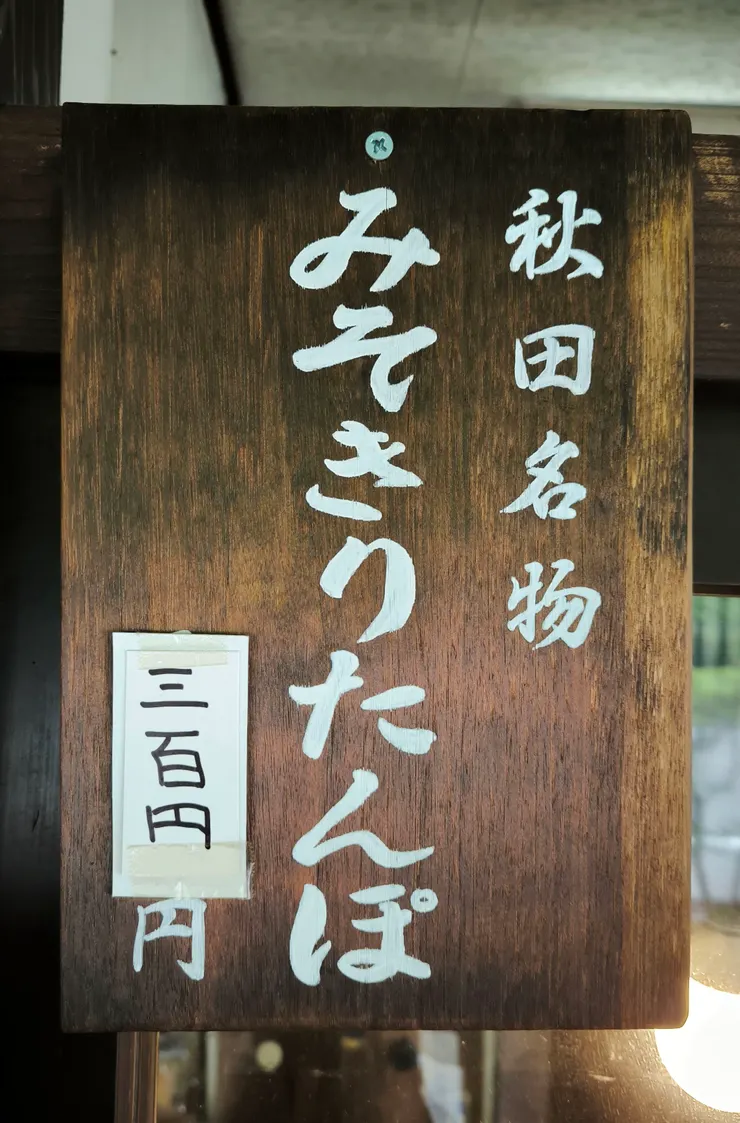 秋田名物
みそきりたんぽ
三百円
円